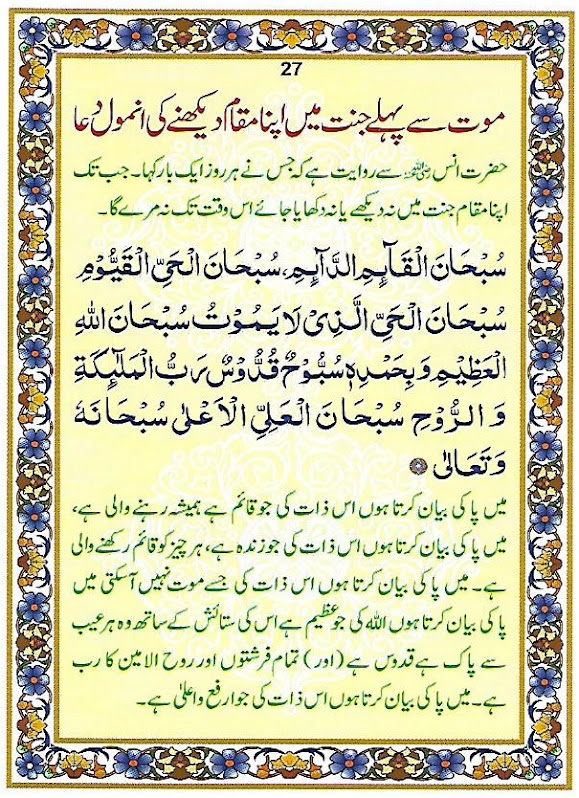 27
موت سے پہلے جنت میں اپنا مقام دیکھنے کی انمول دُعا
حضرت انس رضی اللہ عنہ سے روایت ہے کہ جس نے ہر روز ایک بار کہا۔ جب تک
اپنا مقام جنت میں نہ دیکھے یا نہ دکھایا جائے اس وقت تک نہ مرے گا۔
سُبْحَانَ الْقَآئِمِ الدَّآئِمِ، سُبْحَانَ الْحَيِّ الْقَيُّوْمِ
سُبْحَانَ الْحَيِّ الَّذِیْ لَا يَمُوْتُ سُبْحَانَ اللهِ
الْعَظِيْمِ وَبِحَمْدِهٖ سُبُّوْحٌ قُدُّوْسٌ رَبُّ الْمَلٰٓئِكَةِ
وَالرُّوْحِ سُبْحَانَ الْعَلِيِّ الْاَعْلٰى سُبْحَانَهٗ
وَتَعَالٰى
میں پاکی بیان کرتا ہوں اس ذات کی جو قائم ہے ہمیشہ رہنے والی ہے،
میں پاکی بیان کرتا ہوں اس ذات کی جو زندہ ہے، ہر چیز کو قائم رکھنے والی
ہے۔ میں پاکی بیان کرتا ہوں اس ذات کی جسے موت نہیں آسکتی میں
پاکی بیان کرتا ہوں اللہ کی جو عظیم ہے اس کی ستائش کے ساتھ وہ ہر عیب
سے پاک ہے قدوس ہے (اور) تمام فرشتوں اور روح الامین کا رب
ہے۔ میں پاکی بیان کرتا ہوں اس ذات کی جو ارفع و اعلیٰ ہے۔